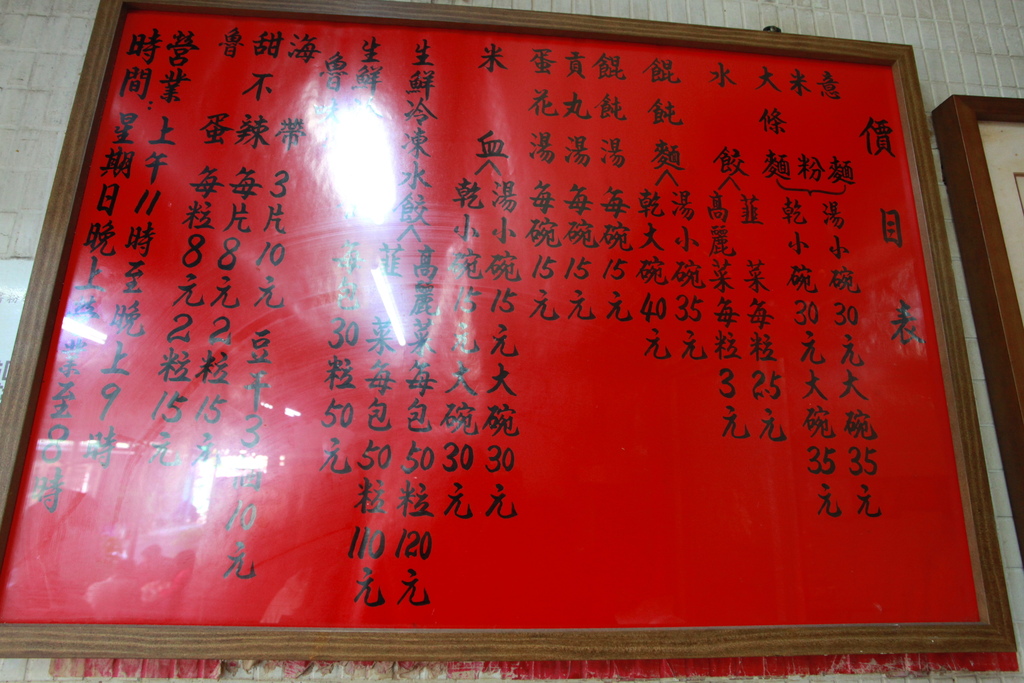 價目表
意麵
米粉
大條麵
湯小碗30元大碗35元
乾小碗30元大碗35元
水餃
韮菜每粒2.5元
高麗菜每粒3元
餛飩麵
湯小碗35元
乾大碗40元
餛飩湯每碗15元
貢丸湯每碗15元
蛋花湯每碗15元
米血
湯小碗15元大碗30元
乾小碗15元大碗30元
生鮮冷凍水餃
高麗菜每包50粒120元
韮菜每包50粒110元
生鮮
魯味
每包30粒50元
海帶3片10元
豆干3
10元
甜不辣每片8元2粒15元
魯蛋每粒8元2粒15元
營業時間:
上午11時至晚上9時
星期日晚上營業至8時